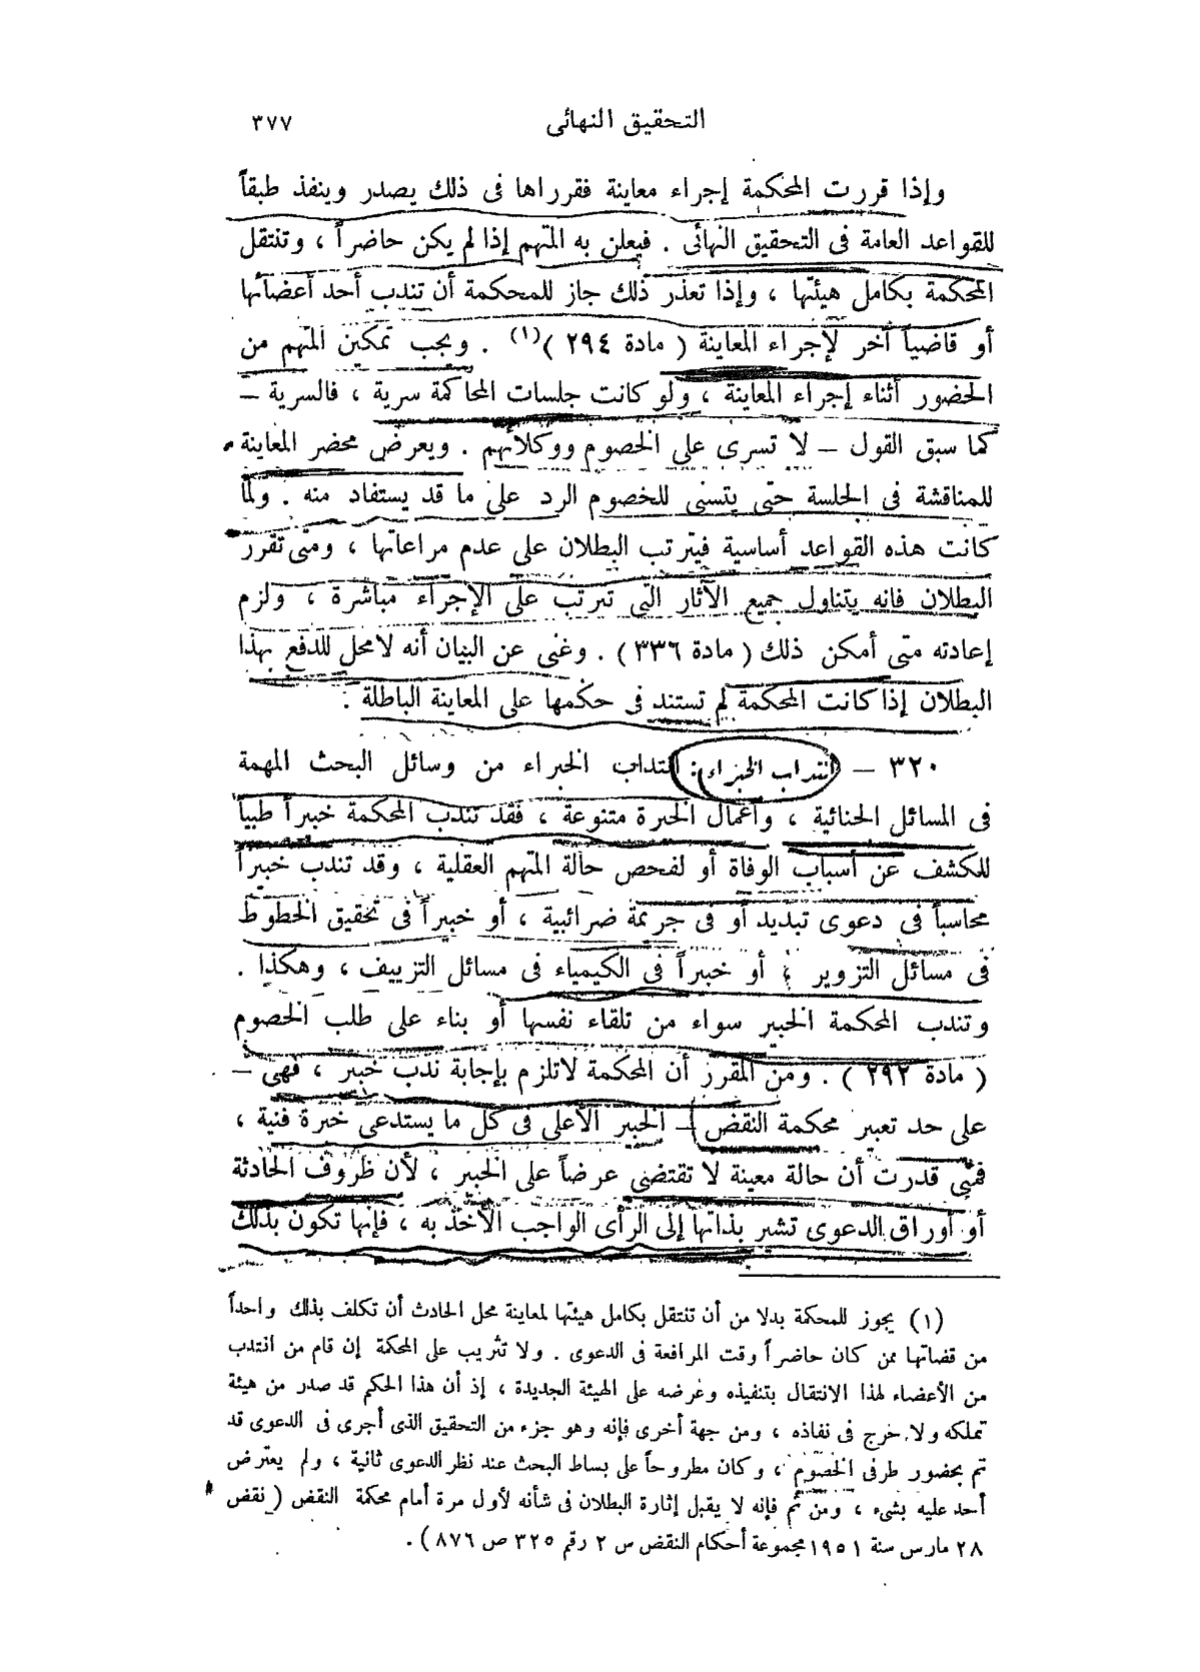 التحقيق النهائى ٣٧٧
وإذا قررت المحكمة إجراء معاينة فقرراها فى ذلك يصدر وينفذ طبقاً
للقواعد العامة فى التحقيق النهائى . فيعلن به المتهم إذا لم يكن حاضراً ، وتنتقل
المحكمة بكامل هيئتها ، وإذا تعذر ذلك جاز للمحكمة أن تندب أحد أعضائها
أو قاضياً آخر لإجراء المعاينة ( مادة ٢٩٤ )(١) . ويجب تمكين المتهم من
الحضور أثناء إجراء المعاينة ، ولو كانت جلسات المحاكمة سرية ، فالسرية –
كما سبق القول – لا تسرى على الخصوم ووكلائهم . ويعرض محضر المعاينة
للمناقشة فى الجلسة حتى يتسنى للخصوم الرد على ما قد يستفاد منه . ولما
كانت هذه القواعد أساسية فيترتب البطلان على عدم مراعاتها ، ومتى تقرر
البطلان فانه يتناول جميع الآثار التى تترتب على الإجراء مباشرة ، ولزم
إعادته متى أمكن ذلك ( مادة ٣٣٦ ) . وغنى عن البيان أنه لا محل للدفع بهذا
البطلان إذا كانت المحكمة لم تستند فى حكمها على المعاينة الباطلة .
٣٢٠ – انتداب الخبراء : انتداب الخبراء من وسائل البحث المهمة
فى المسائل الجنائية ، وأعمال الخبرة متنوعة ، فقد تندب المحكمة خبيراً طبياً
للكشف عن أسباب الوفاة أو لفحص حالة المتهم العقلية ، وقد تندب خبيراً
محاسباً فى دعوى تبديد أو فى جريمة ضرائبية ، أو خبيراً فى تحقيق الخطوط
فى مسائل التزوير ؛ أو خبيراً فى الكيمياء فى مسائل التزييف ، وهكذا .
وتندب المحكمة الخبير سواء من تلقاء نفسها أو بناء على طلب الخصوم
( مادة ٢٩٢ ) . ومن المقرر أن المحكمة لا تلزم بإجابة ندب خبير ، فهى –
على حد تعبير محكمة النقض – الخبير الأعلى فى كل ما يستدعى خبرة فنية ،
فمتى قدرت أن حالة معينة لا تقتضى عرضاً على الخبير ، لأن ظروف الحادثة
أو أوراق الدعوى تشير بذاتها إلى الرأى الواجب الأخذ به ، فإنها تكون بذلك
(١) يجوز للمحكمة بدلا من أن تنتقل بكامل هيئتها لمعاينة محل الحادث أن تكلف بذلك واحداً
من قضاتها ممن كان حاضراً وقت المرافعة فى الدعوى . ولا تثريب على المحكمة إن قام من انتدب
من الأعضاء لهذا الانتقال بتنفيذه وعرضه على الهيئة الجديدة ، إذ أن هذا الحكم قد صدر من هيئة
تملكه ولا حرج فى نفاذه ، ومن جهة أخرى فإنه وهو جزء من التحقيق الذى أجرى فى الدعوى قد
تم بحضور طرفى الخصوم ، وكان مطروحاً على بساط البحث عند نظر الدعوى ثانية ، ولم يعترض
أحد عليه بشىء ، ومن ثم فإنه لا يقبل إثارة البطلان فى شأنه لأول مرة أمام محكمة النقض ( نقض
٢٨ مارس سنة ١٩٥١ مجموعة أحكام النقض س ٢ رقم ٣٢٥ ص ٨٧٦ ) .